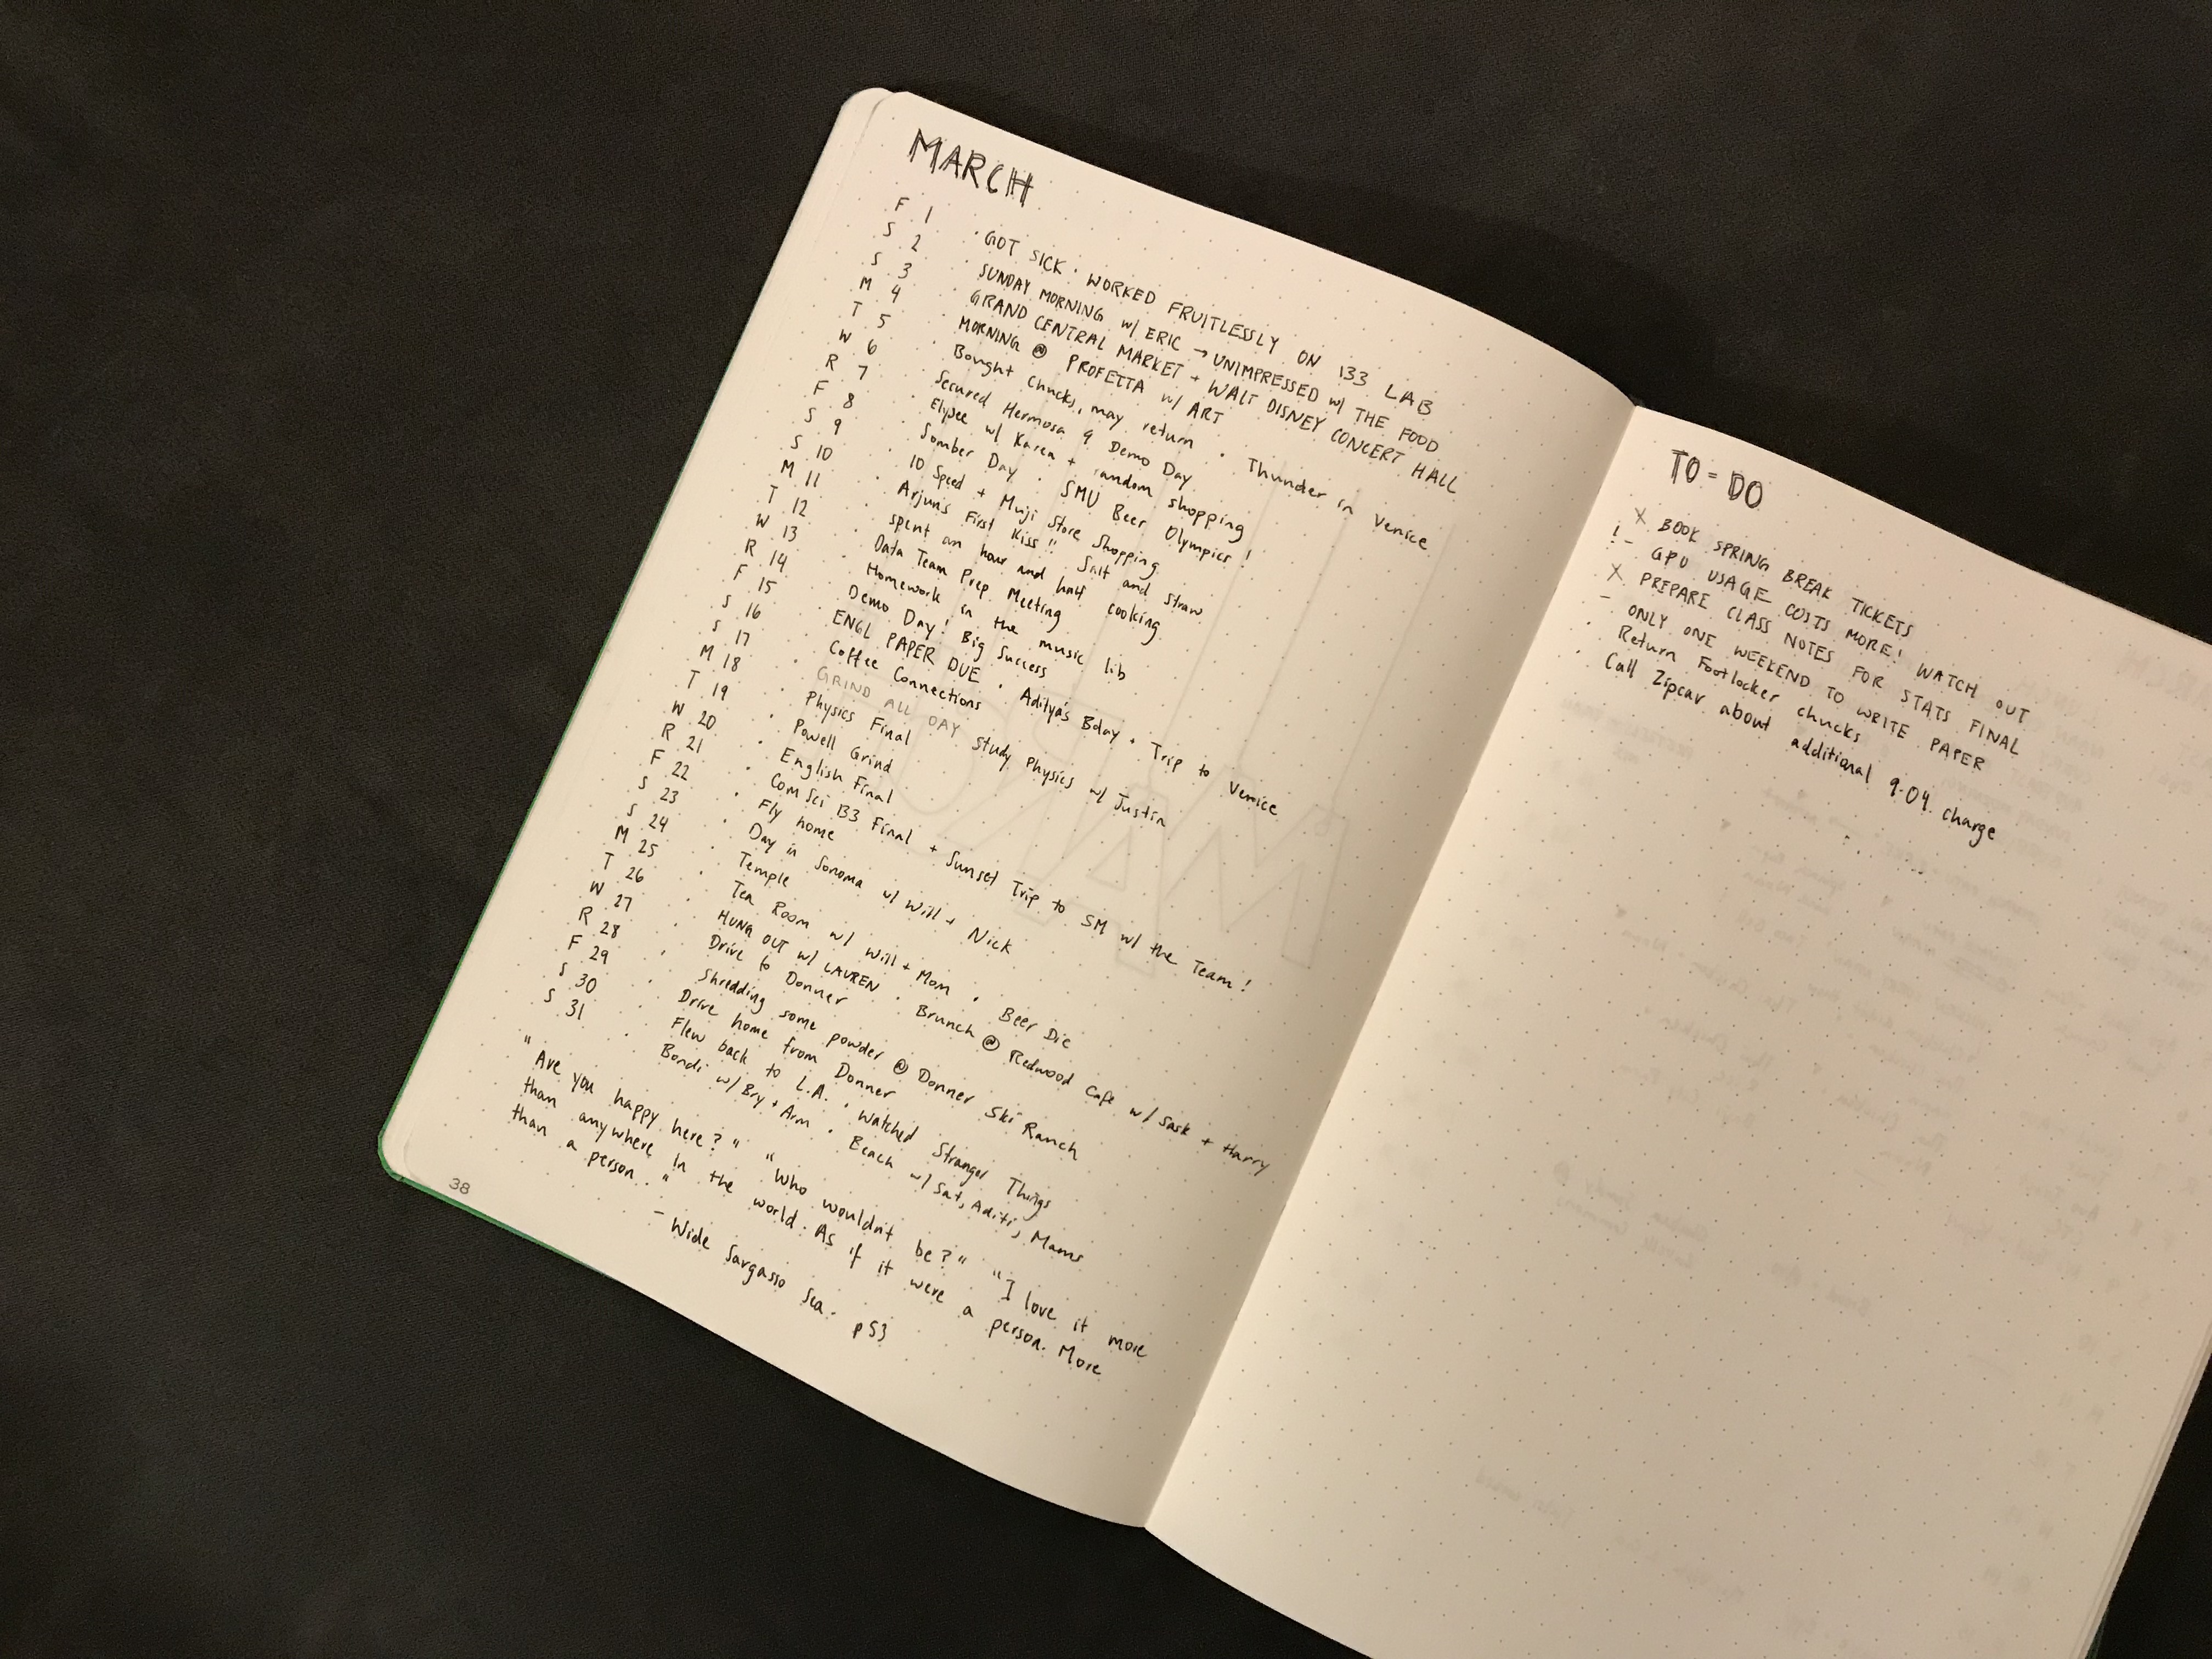 MARCH
F 1 · GOT SICK · WORKED FRUITLESSLY ON 133 LAB
S 2 · SUNDAY MORNING w/ ERIC → UNIMPRESSED w/ THE FOOD
S 3 · GRAND CENTRAL MARKET + WALT DISNEY CONCERT HALL
M 4 · MORNING @ PROFETTA w/ ART
T 5 · Bought chucks, may return · Thunder in Venice
W 6 · Secured Hermosa 9 Demo Day
R 7 · Elysee w/ Karen + random shopping
F 8 · Somber Day · SMU Beer Olympics!
S 9 · 10 Speed + Muji Store Shopping
S 10 · Arjun's First Kiss!! Salt and Straw
M 11 · spent an hour and half cooking
T 12 · Data Team Prep Meeting
W 13 · Homework in the music lib
R 14 · Demo Day! Big Success
F 15 · ENGL PAPER DUE · Aditya's Bday + Trip to Venice
S 16 · Coffee Connections
S 17 · GRIND ALL DAY Study Physics w/ Justin
M 18 · Physics Final
T 19 · Powell Grind
W 20 · English Final
R 21 · Com Sci 133 Final + Sunset Trip to SM w/ the Team!
F 22 · Fly home
S 23 · Day in Sonoma w/ Will + Nick
S 24 · Temple
M 25 · Tea Room w/ Will + Mom · Beer Die
T 26 · HUNG OUT w/ LAUREN · Brunch @ Redwood Cafe w/ Sask + Harry
W 27 · Drive to Donner
R 28 · Shredding some powder @ Donner Ski Ranch
F 29 · Drive home from Donner
S 30 · Flew back to L.A. · Watched Stranger Things
S 31 · Bondi w/ Bry + Arm · Beach w/ Sat, Aditi, Mams
"Are you happy here?" "Who wouldn't be?" "I love it more
than anywhere in the world. As if it were a person. More
than a person."
- Wide Sargasso Sea. p 53
38
TO-DO
X BOOK SPRING BREAK TICKETS
! - GPU USAGE COSTS MORE! WATCH OUT
X PREPARE CLASS NOTES FOR STATS FINAL
- ONLY ONE WEEKEND TO WRITE PAPER
· Return Footlocker chucks
· Call Zipcar about additional 9.04 charge